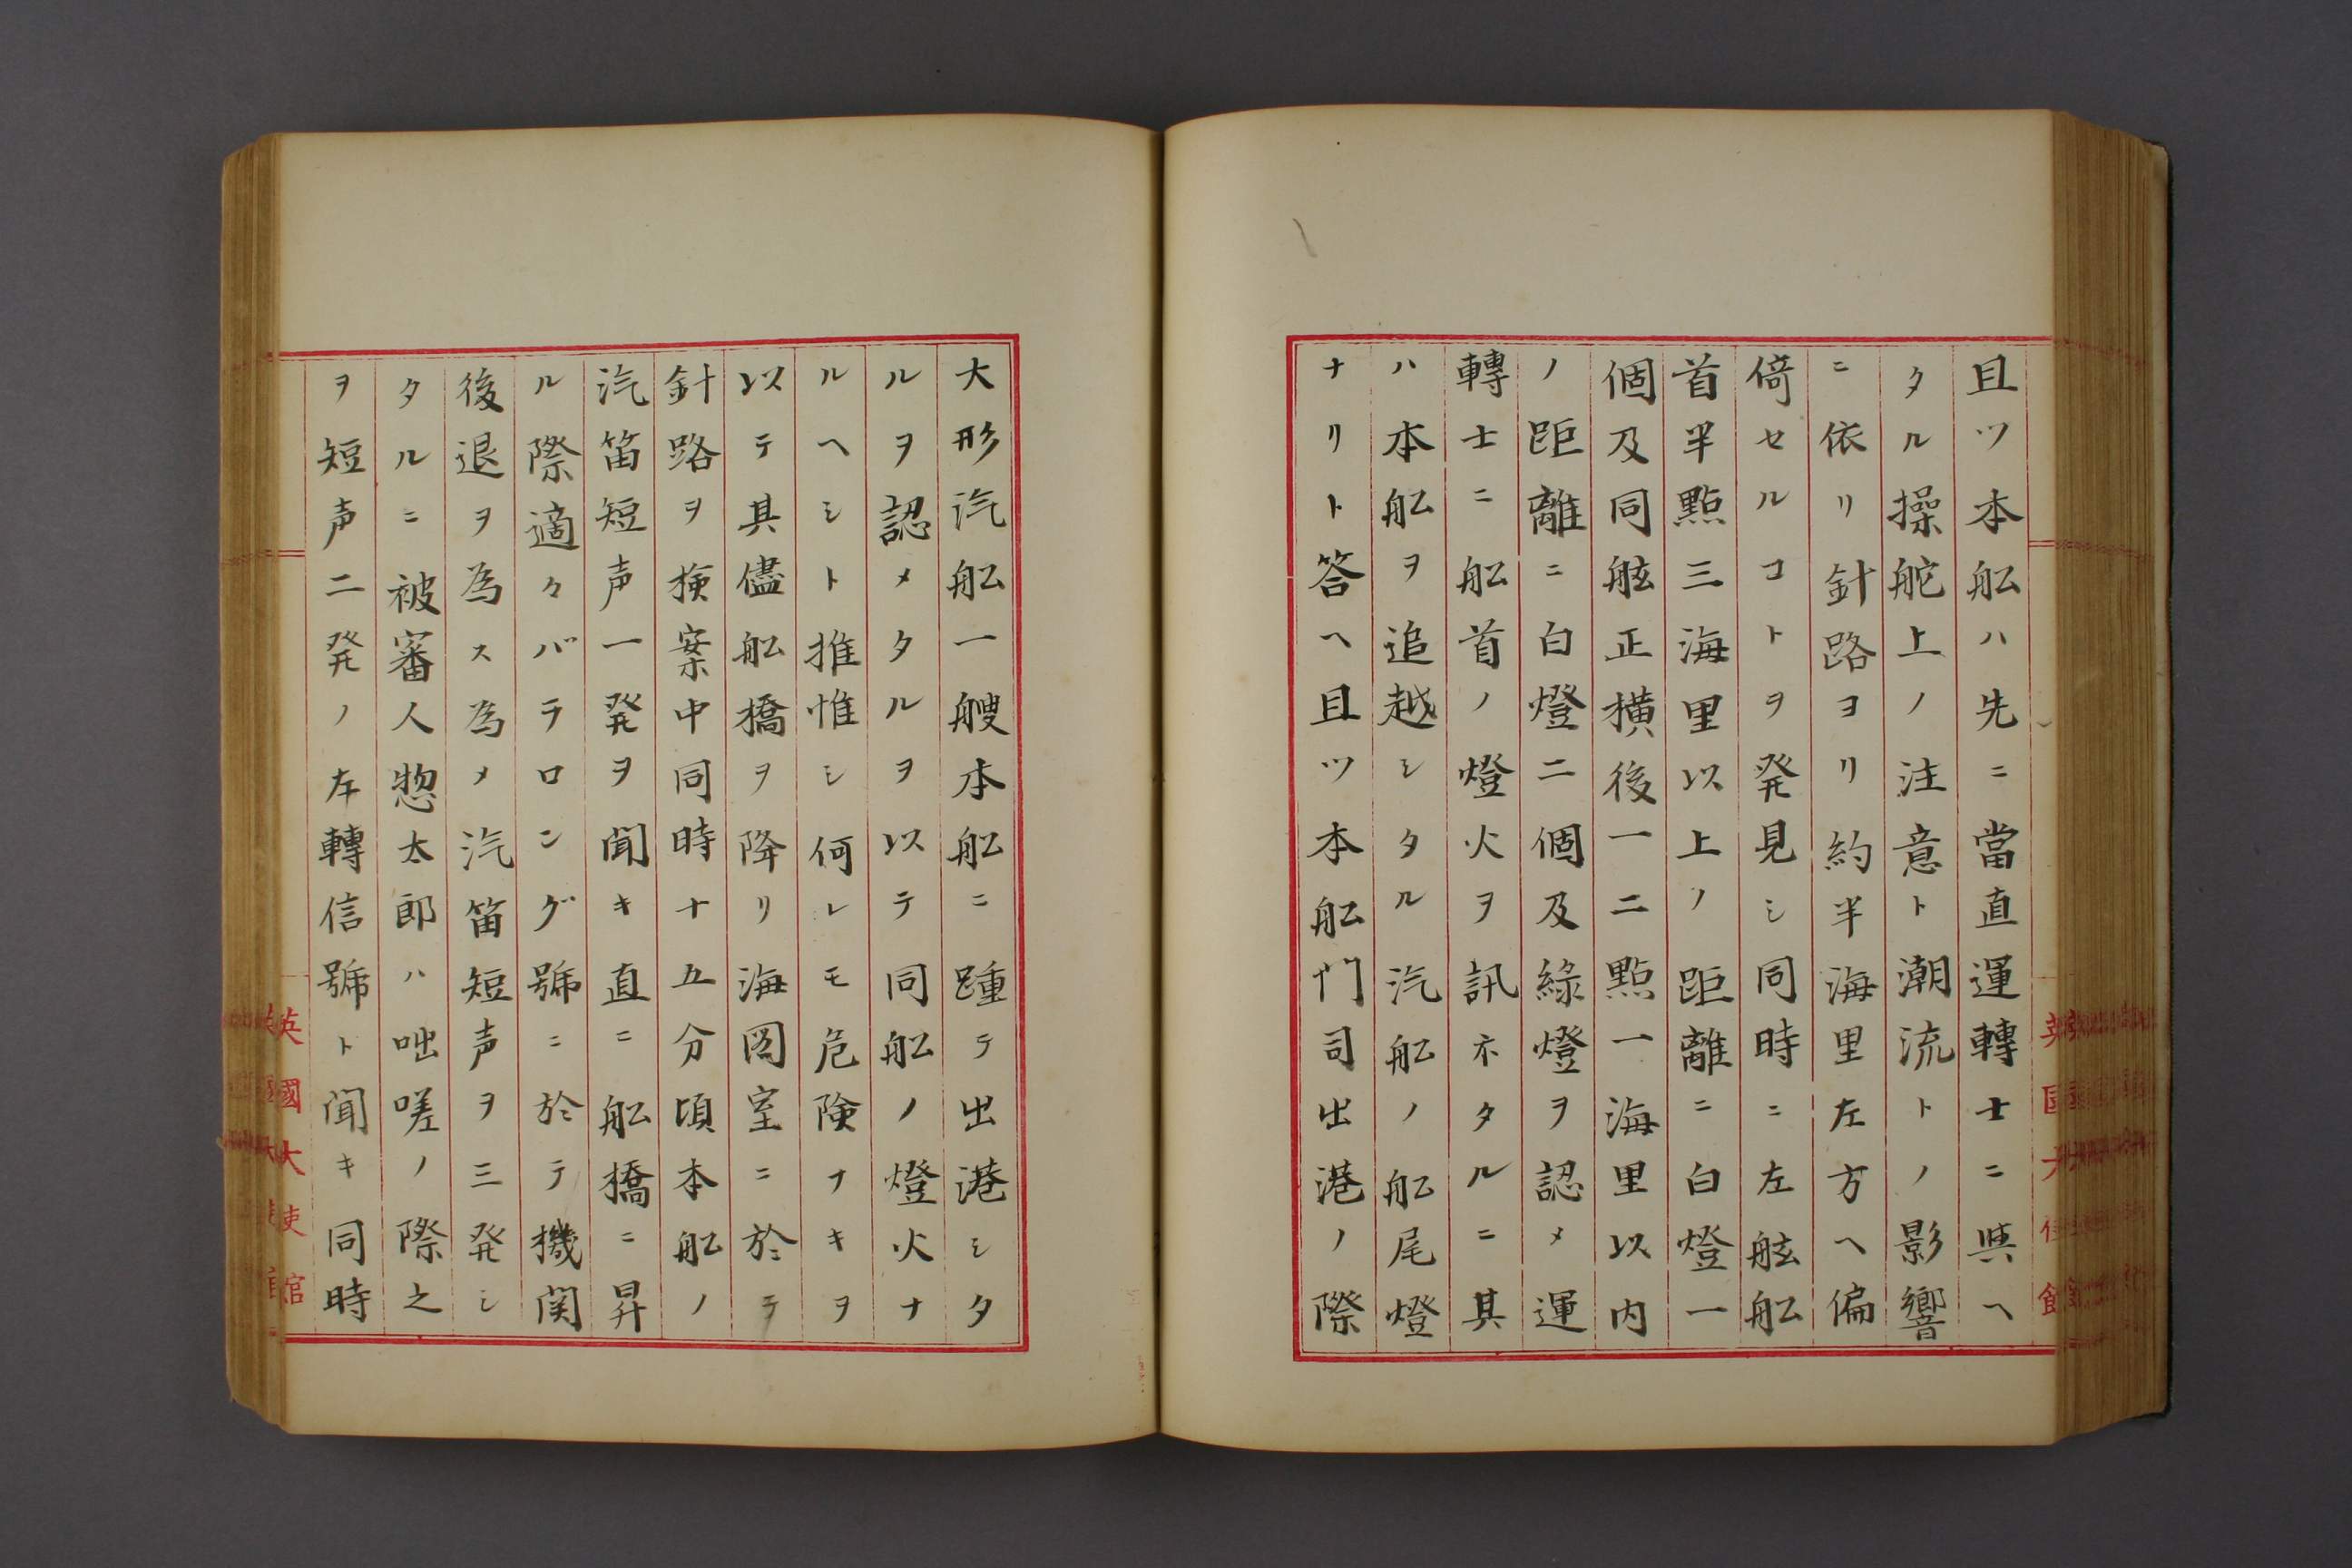 且ツ本舩ハ先ニ當直運轉士ニ與ヘ
タル操舵上ノ注意ト潮流トノ影響
ニ依リ針路ヨリ約半海里左方ヘ偏
倚セルコトヲ発見シ同時ニ左舷舩
首半點三海里以上ノ距離ニ白燈一
個及同舷正横後一二點一海里以内
ノ距離ニ白燈二個及綠燈ヲ認メ運
轉士ニ舩首ノ燈火ヲ訊ネタルニ其
ハ本舩ヲ追越シタル汽舩ノ舩尾燈
ナリト答ヘ且ツ本舩門司出港ノ際
大形汽舩一艘本舩ニ踵テ出港シタ
ルヲ認メタルヲ以テ同舩ノ燈火ナ
ルヘシト推惟シ何レモ危険ナキヲ
以テ其儘舩橋ヲ降リ海図室ニ於テ
針路ヲ検案中同時十五分頃本舩ノ
汽笛短声一発ヲ聞キ直ニ舩橋ニ昇
ル際適々バテロング號ニ於テ機関
後退ヲ為ス為メ汽笛短声ヲ三発シ
タルニ被審人惣太郎ハ咄嗟ノ際之
ヲ短声二発ノ左轉信號ト聞キ同時
英國大使館